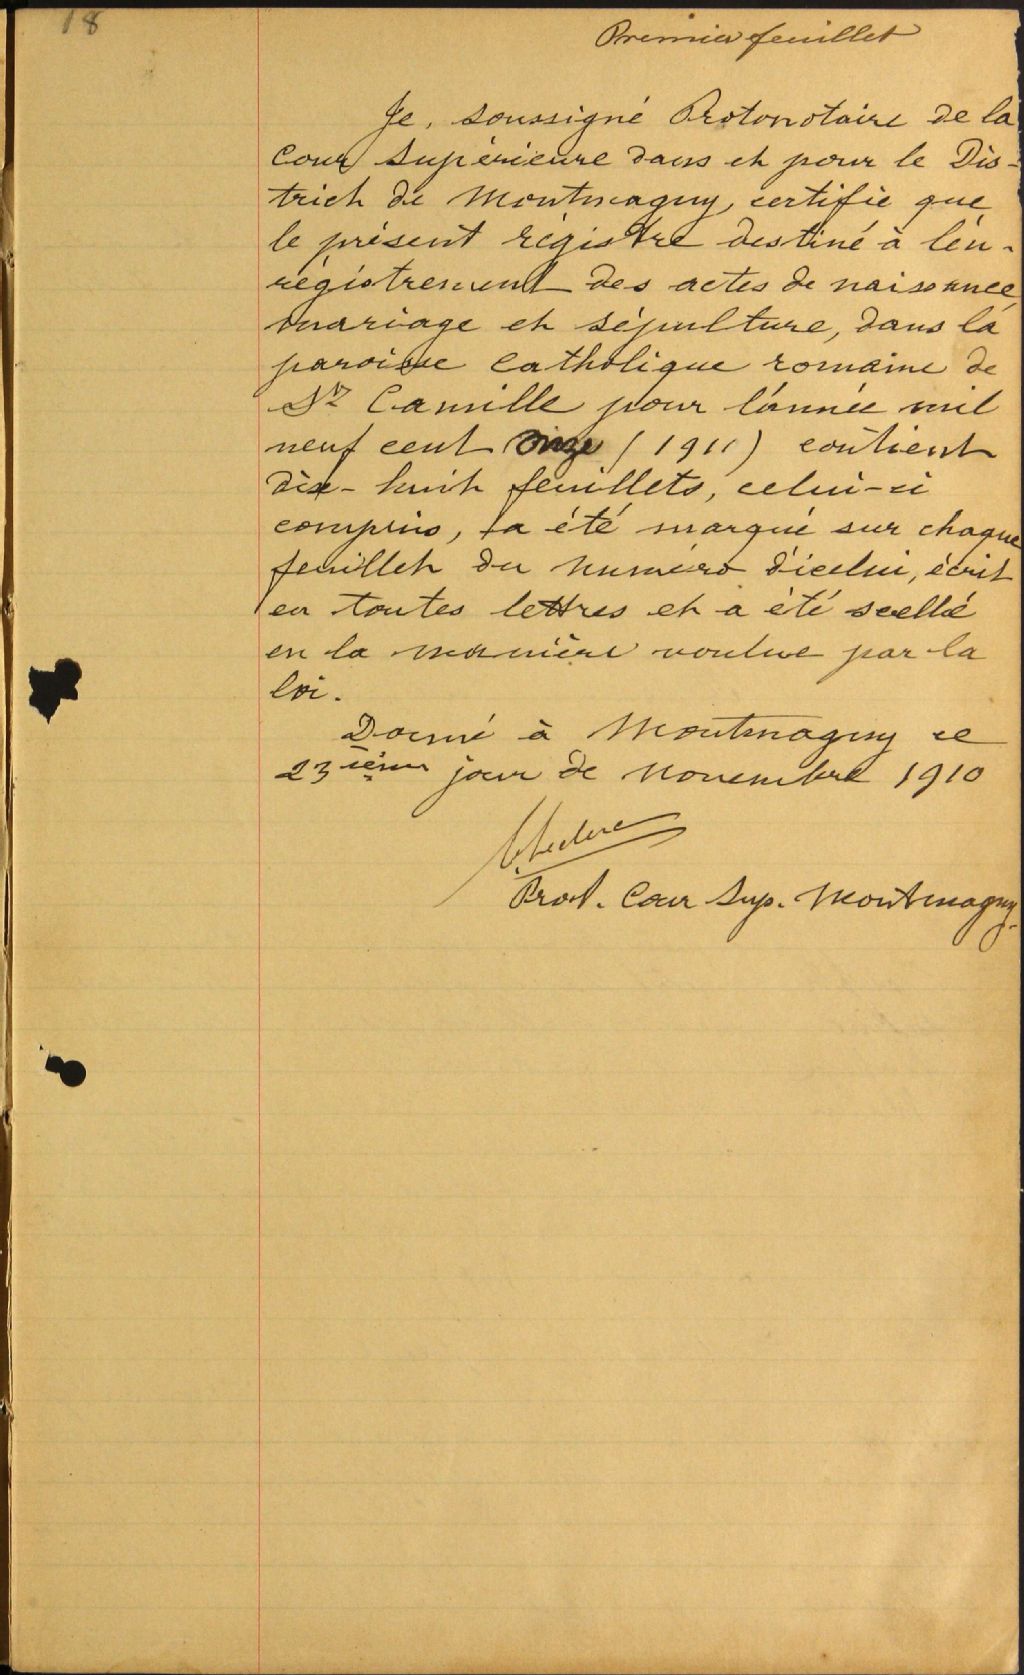 18
Premier feuillet
Je, soussigné Protonotaire de la
Cour Supérieure dans et pour le Dis-
trict de Montmagny, certifie que
le présent régistre destiné à l'en-
régistrement des actes de naissance,
mariage et sépulture, dans la
paroisse Catholique romaine de
St Camille pour l'année mil
neuf cent onze (1911) contient
dix-huit feuillets, celui-ci
compris, a été marqué sur chaque
feuillet du numéro d'icelui, écrit
en toutes lettres et a été scellé
en la manière voulue par la
loi.
Donné à Montmagny ce
23ième jour de Novembre 1910
Leclerc
Prot. Cour Sup. Montmagny.